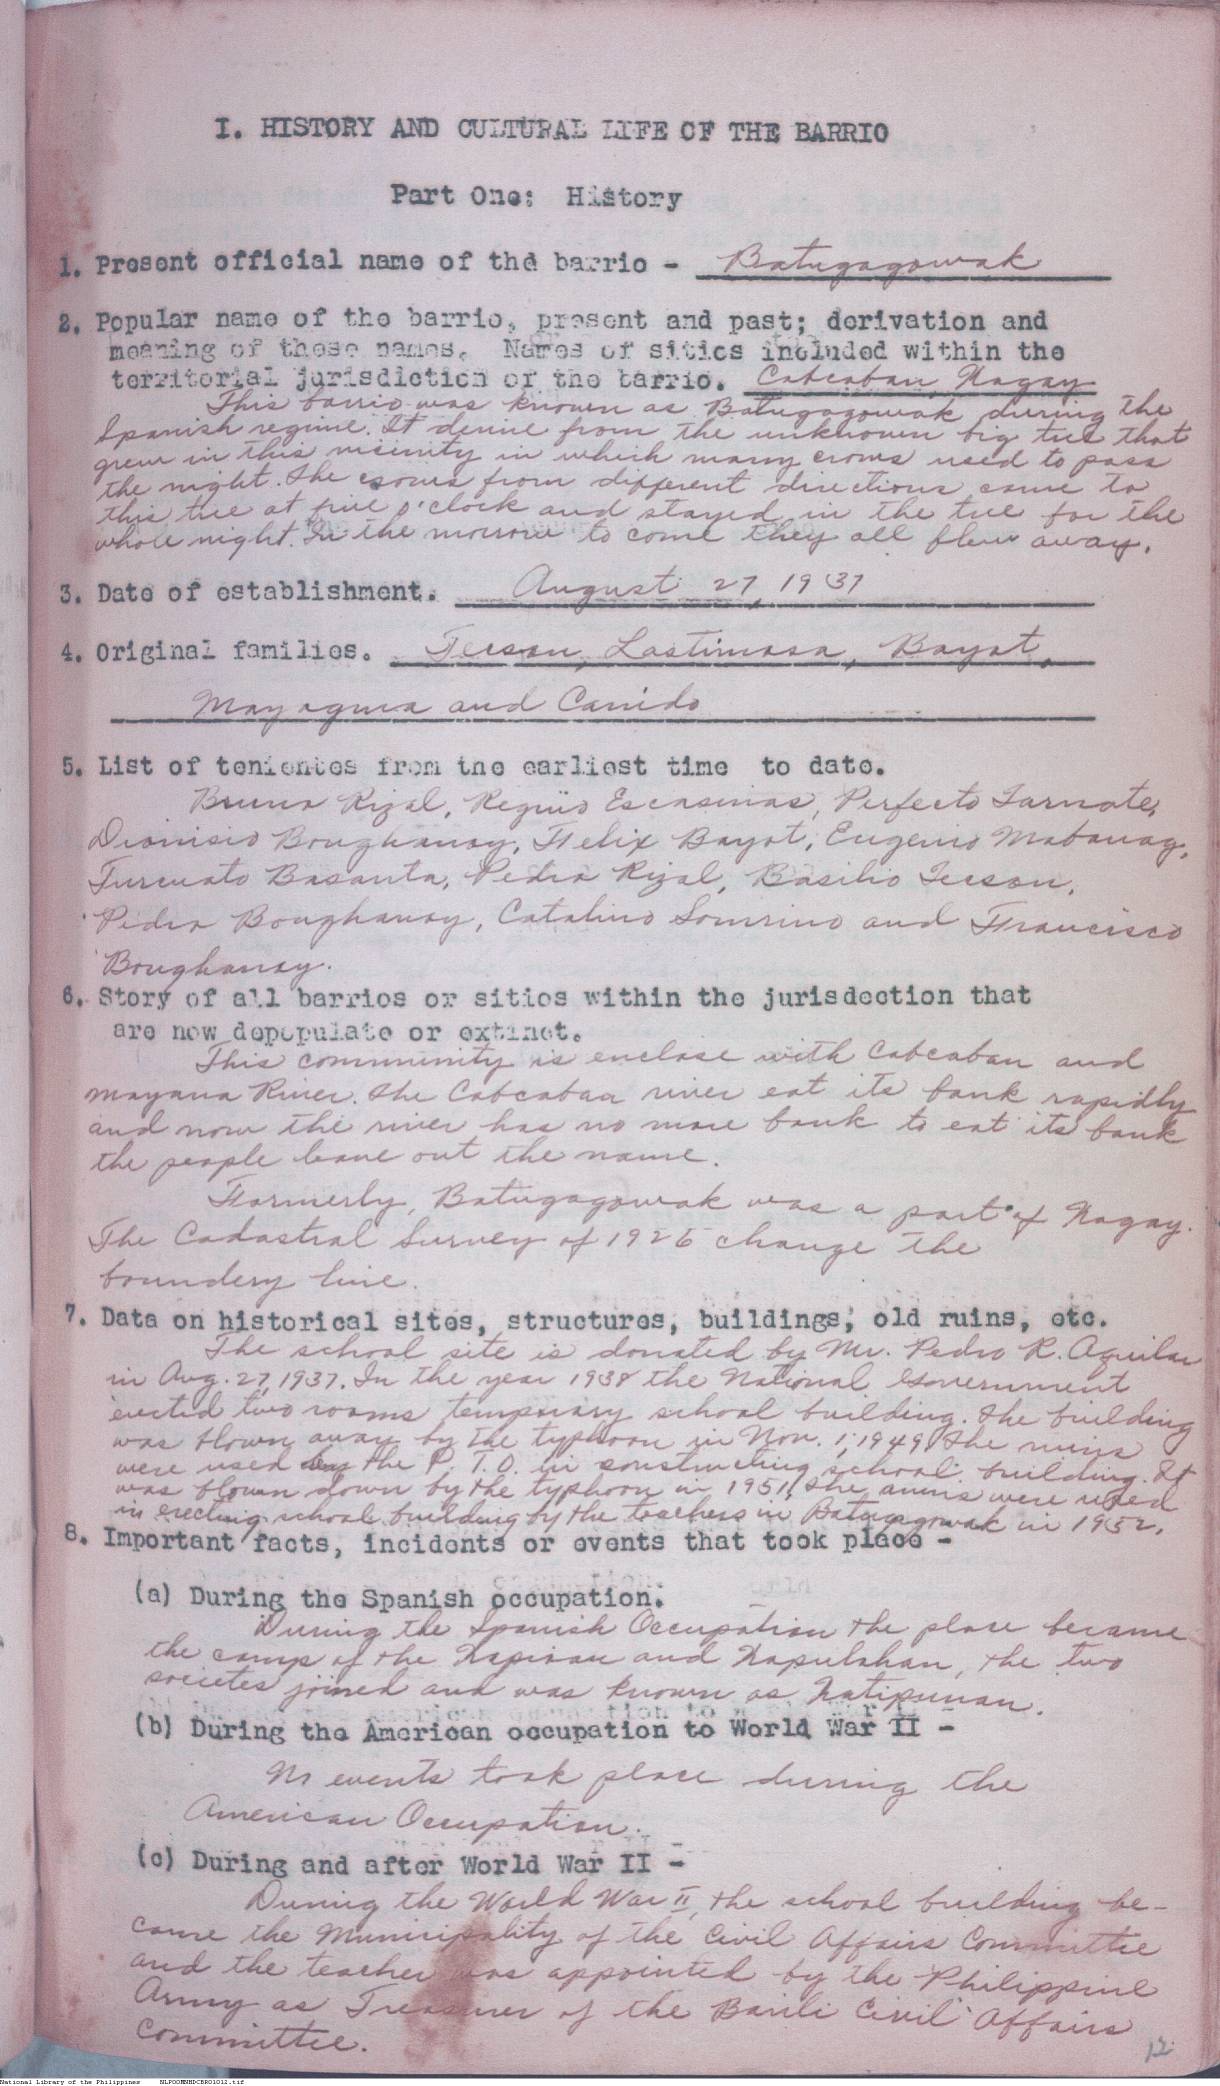 I. HISTORY AND CULTURAL LIFE OF THE BARRIO
Part One: History
1. Present official name of the barrio - Batugagowak
2. Popular name of the barrio, present and past; derivation and
meaning of these names. Names of sitios included within the
territorial jurisdiction of the barrio. Cabcaban, Nagay
This barrio was known as Batugagowak during the
Spanish regime. It derive from the unknown big tree that
grew in this vicinity in which many crows used to pass
the night. The crows from different directions come to
this tree at five o'clock and stayed in the tree for the
whole night. In the morrow to come they all flew away.
3. Date of establishment. August 27, 1937
4. Original families. Tecson, Lastimosa, Bayot,
and Canido
5. List of tenientes from the earliest time to date.
Bruno Rizal, Escasinas, Perfecto Tarnate,
Dionisio Boughanoy, Felix Bayot, Eugenio Mabanag,
Basanta, Pedro Rizal, Basilio Tecson,
Pedro Boughanoy, Catalino and Francisco
Boughanoy.
6. Story of all barrios or sitios within the jurisdection that
are now depopulate or extinct.
This community is enclose with Cabcaban and
Mayana River. The Cabcaban river eat its bank rapidly
and now the river has no more bank to eat its bank
the people leave out the name.
Formerly, Batugagowak was a part of Nagay.
The Cadastral Survey of 1926 change the
boundery line.
7. Data on historical sites, structures, buildings, old ruins, etc.
The school site is donated by Mr. Pedro R. Aguilar
in Aug. 27, 1937. In the year 1938 the National Government
erected two rooms temporary school building. The building
was blown away by the typhoon in Nov. 1, 1949. The ruins
were used by the P. T. O. in constructing school building. It
was blown down by the typhoon in 1951, the ruins were used
in erecting school building by the teachers in Batugagowak in 1952.
8. Important facts, incidents or events that took place -
(a) During the Spanish occupation.
During the Spanish Occupation the place became
the camp of the and Kapulahan, the two
societes joined and was known as Katipunan.
(b) During the American occupation to World War II -
No events took place during the
American Occupation.
(c) During and after World War II -
During the World War II, the school building be-
came the Municipality of the Civil Affairs Committee
and the teacher was appointed by the Philippine
Army as Treasurer of the Barili Civil Affairs
Committee.
12
National Library of the Philippines NLPOOMNHDCBR01012.tif